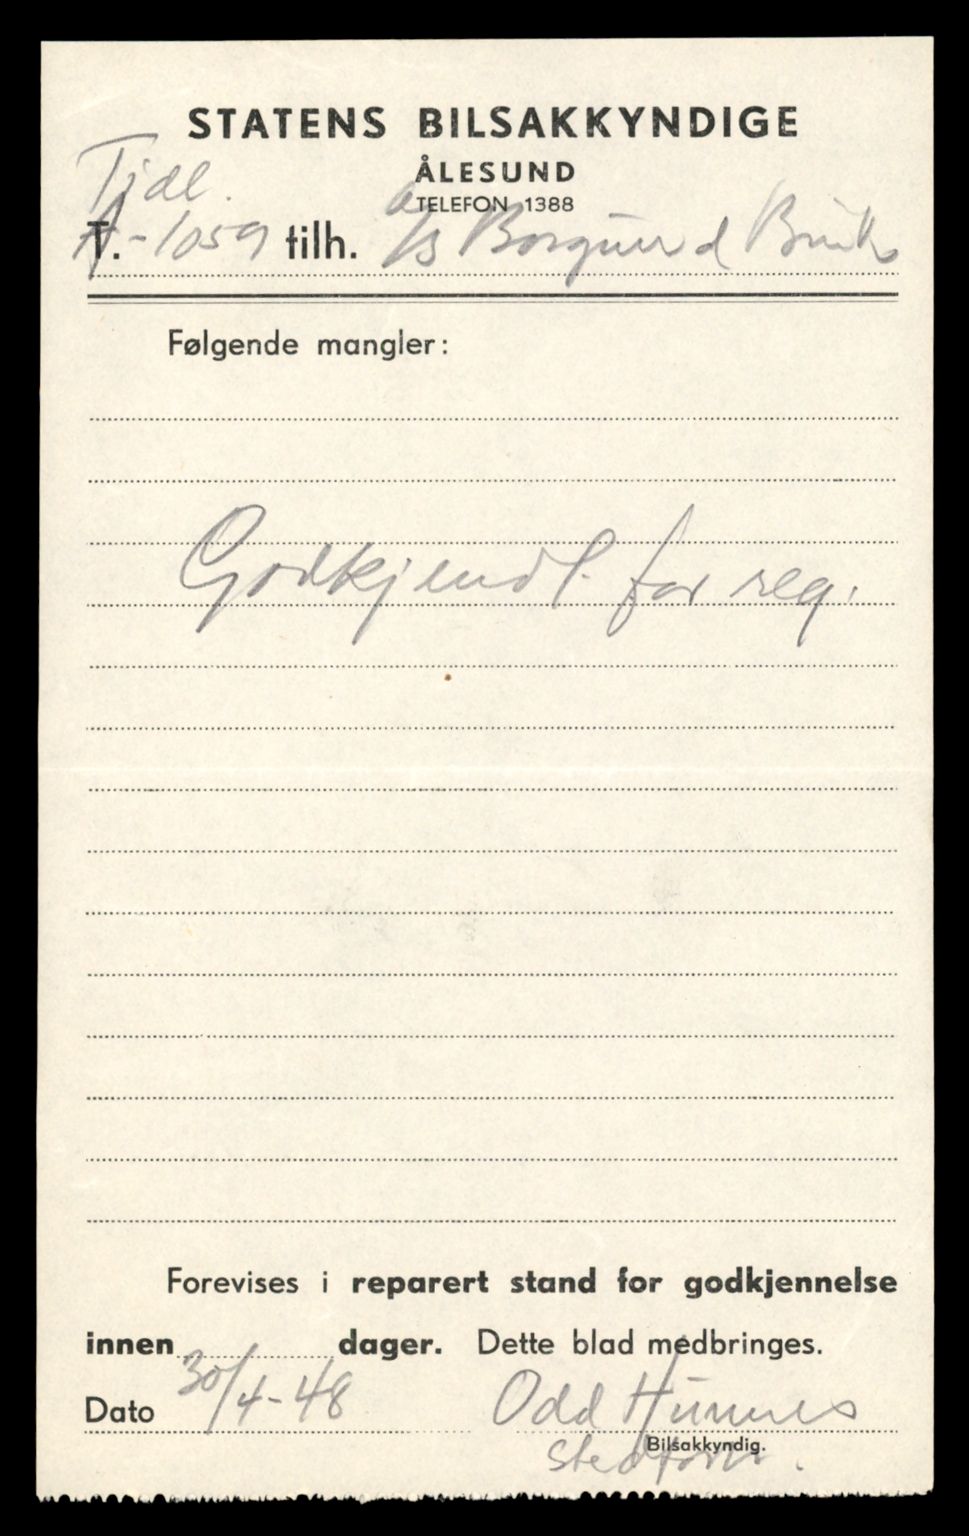 STATENS BILSAKKYNDIGE
ÅLESUND
TELEFON 1388
Tidl.
A.-1059 tilh. A/s Borgund Bruk
Følgende mangler:
Godkjendt. for reg.
Forevises i reparert stand for godkjennelse
innen dager. Dette blad medbringes.
Dato 30/4-48 Odd Humnes
Bilsakkyndig.
stedfortr.